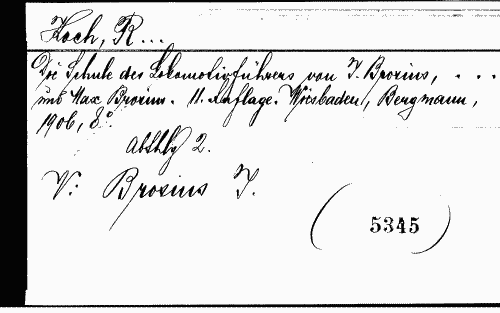 Koch, R...
Die Schule des Lokomotivführers von J. Brosius, ...
und Max Brosius. 11. Auflage. Wiesbaden, Bergmann,
1906, 8°.
Abthlg 2.
V: Brosius J.
(5345)